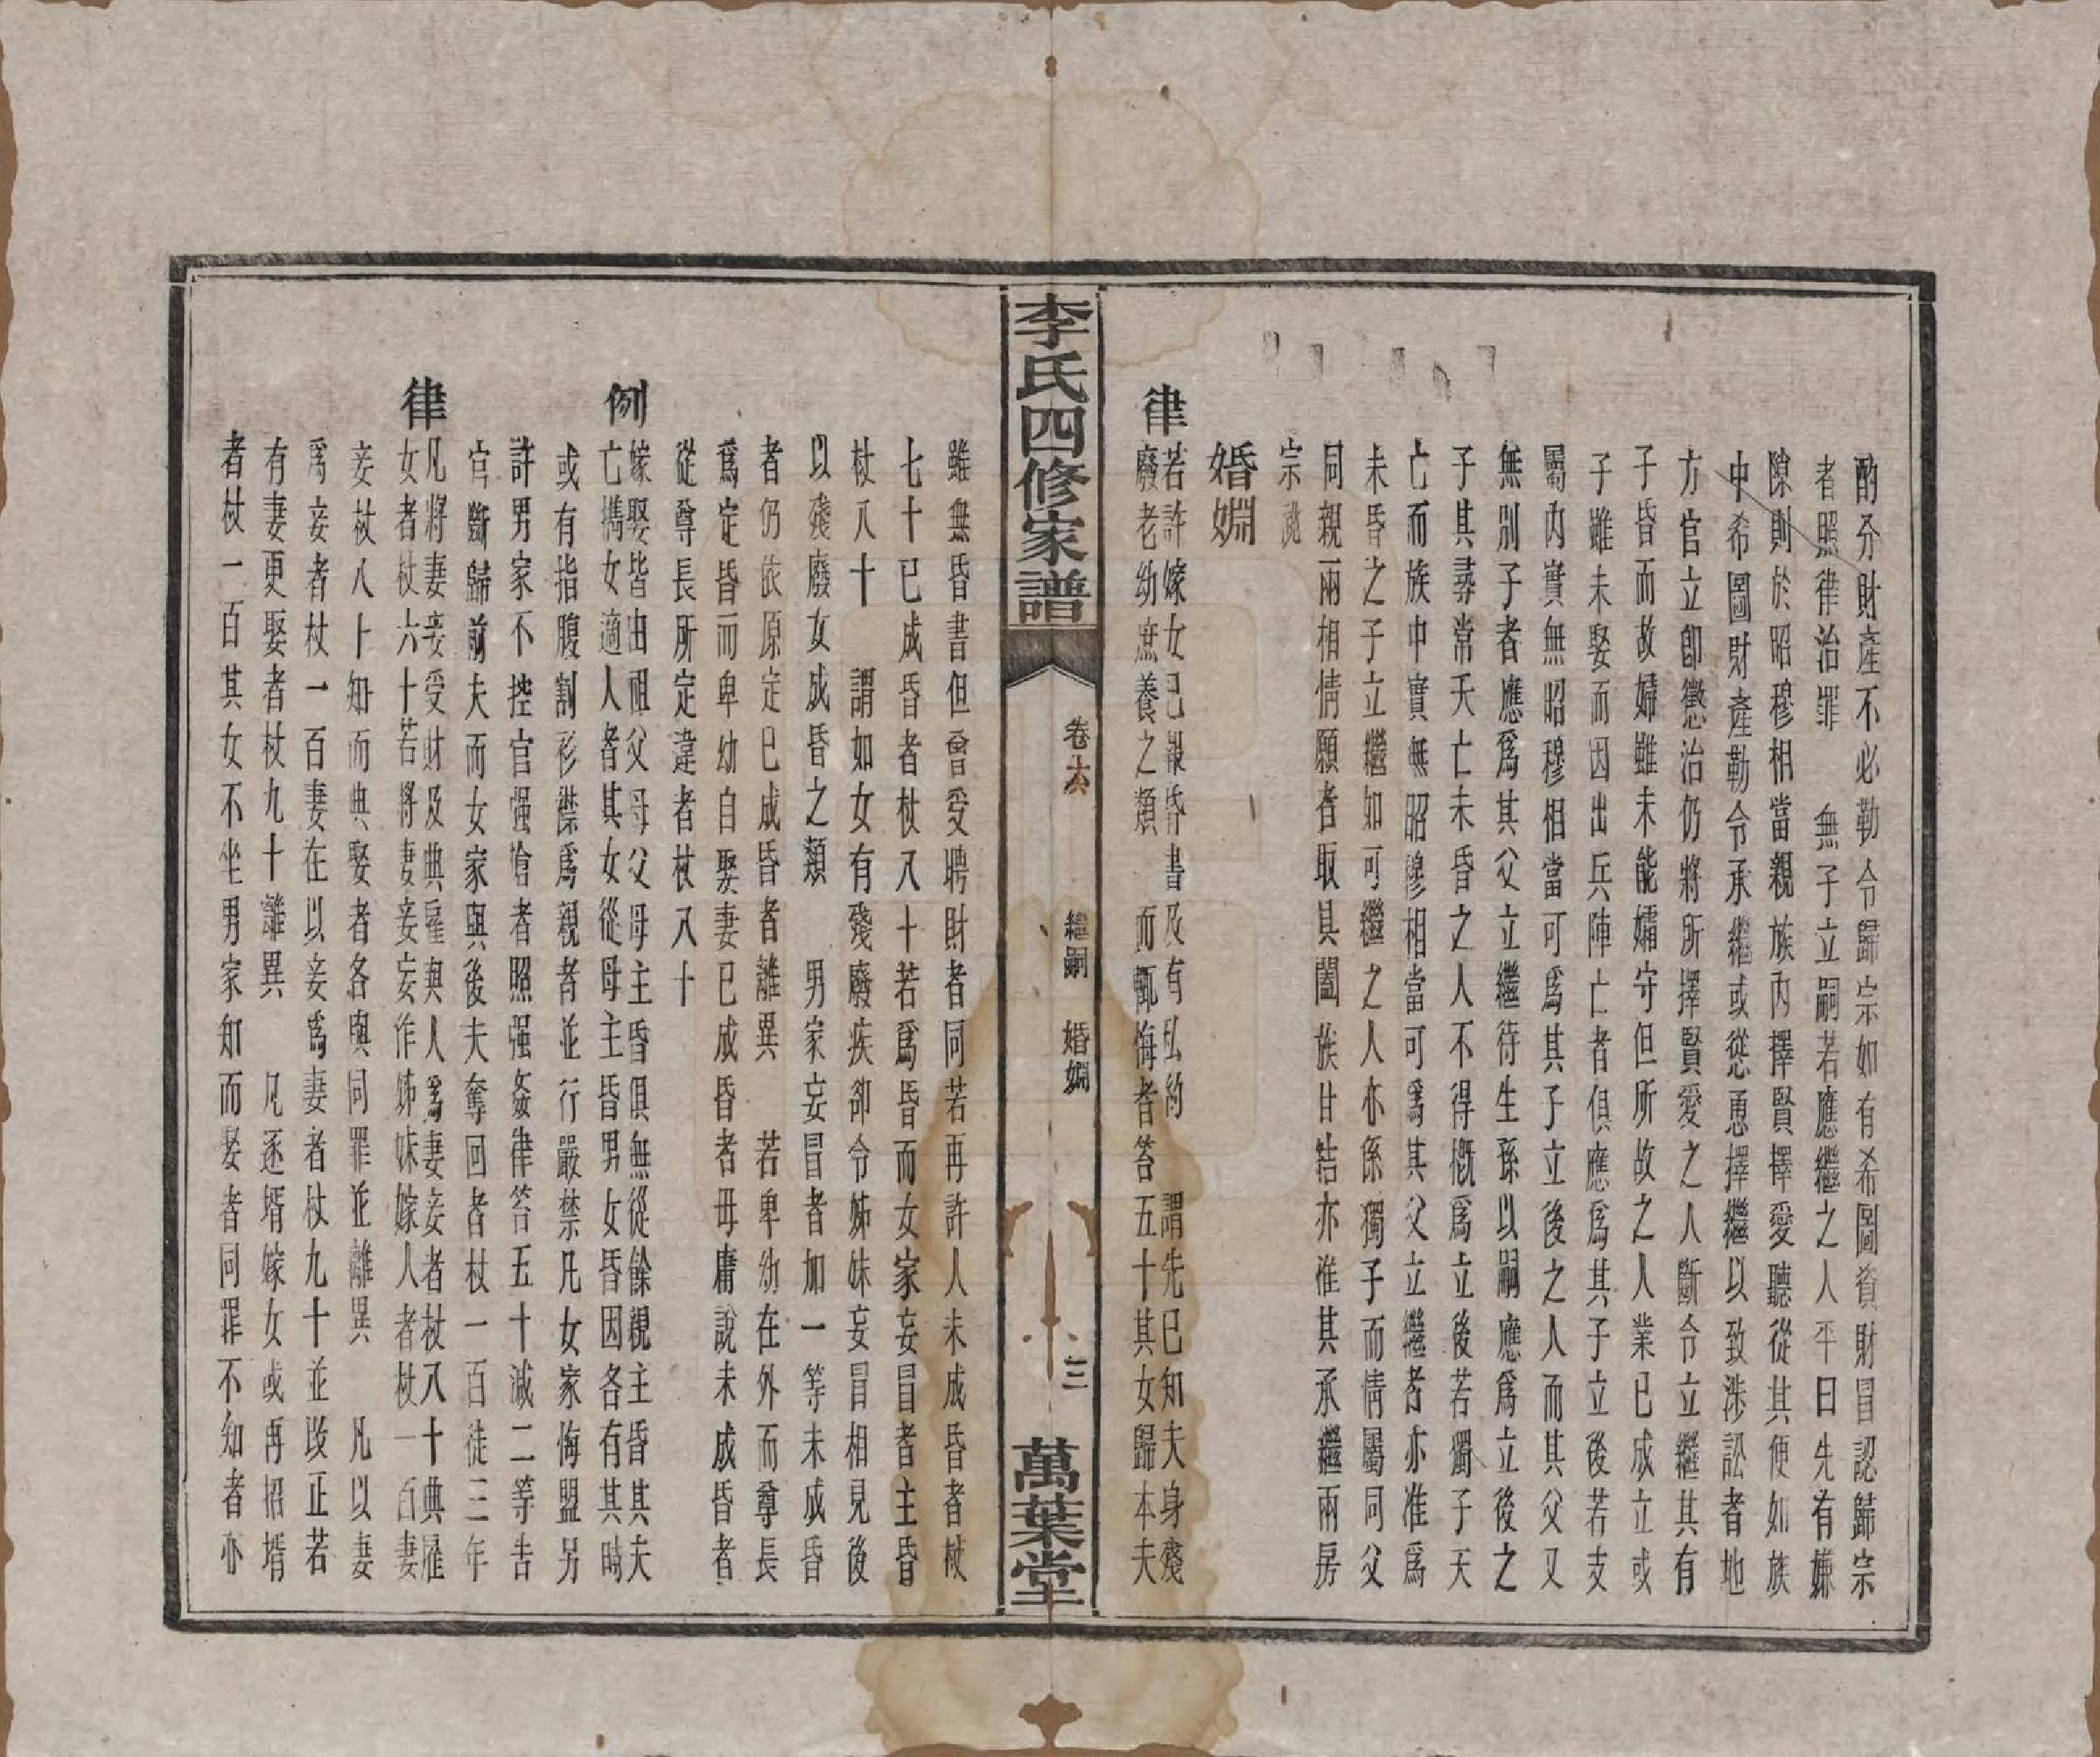 酌分財產不必勒令歸宗如有希圖貲財冒認歸宗
者照律治罪　無子立嗣若應繼之人平日先有嫌
隙則於昭穆相當親族內擇賢擇愛聽從其便如族
中希圖財產勒令承繼或慫恿擇繼以致涉訟者地
方官立卽懲治仍將所擇賢愛之人斷令立繼其有
子昏而故婦雖未能孀守但所故之人業已成立或
子雖未娶而因出兵陣亡者俱應爲其子立後若支
屬內實無昭穆相當可爲其子立後之人而其父又
無別子者應爲其父立繼待生孫以嗣應爲立後之
子其尋常夭亡未昏之人不得槪爲立後若獨子夭
亡而族中實無昭穆相當可爲其父立繼者亦准爲
未昏之子立繼如可繼之人亦係獨子而情屬同父
同親兩相情願者取具闔族甘結亦准其承繼兩房
宗祧
婚婣
律
若許嫁女已報昏書及有私約　謂先已知夫身殘
廢老幼庶養之類　而輒悔者笞五十其女歸本夫
李氏四修家譜
卷六
繼嗣　婚婣
三
萬葉堂
雖無昏書但曾受聘財者同若再許人未成昏者杖
七十已成昏者杖八十若爲昏而女家妄冒者主昏
杖八十　謂如女有殘廢疾卻令姊妹妄冒相見後
以殘廢女成昏之類　男家妄冒者加一等未成昏
者仍依原定已成昏者離異　若卑幼在外而尊長
爲定昏而卑幼自娶妻已成昏者毋庸說未成昏者
從尊長所定違者杖八十
例
嫁娶皆由祖父母父母主昏俱無從餘親主昏其夫
亡攜女適人者其女從母主昏男女昏因各有其時
或有指腹割衫襟爲親者並行嚴禁凡女家悔盟另
許男家不控官强搶者照强姦律笞五十減二等告
官斷歸前夫而女家與後夫奪回者杖一百徒三年
律
凡將妻妾受財及典雇與人爲妻妾者杖八十典雇
女者杖六十若將妻妾妄作姊妹嫁人者杖一百妻
妾杖八十知而典娶者各與同罪並離異　凡以妻
爲妾者杖一百妻在以妾爲妻者杖九十並改正若
有妻更娶者杖九十離異　凡逐壻嫁女或再招壻
者杖一百其女不坐男家知而娶者同罪不知者亦